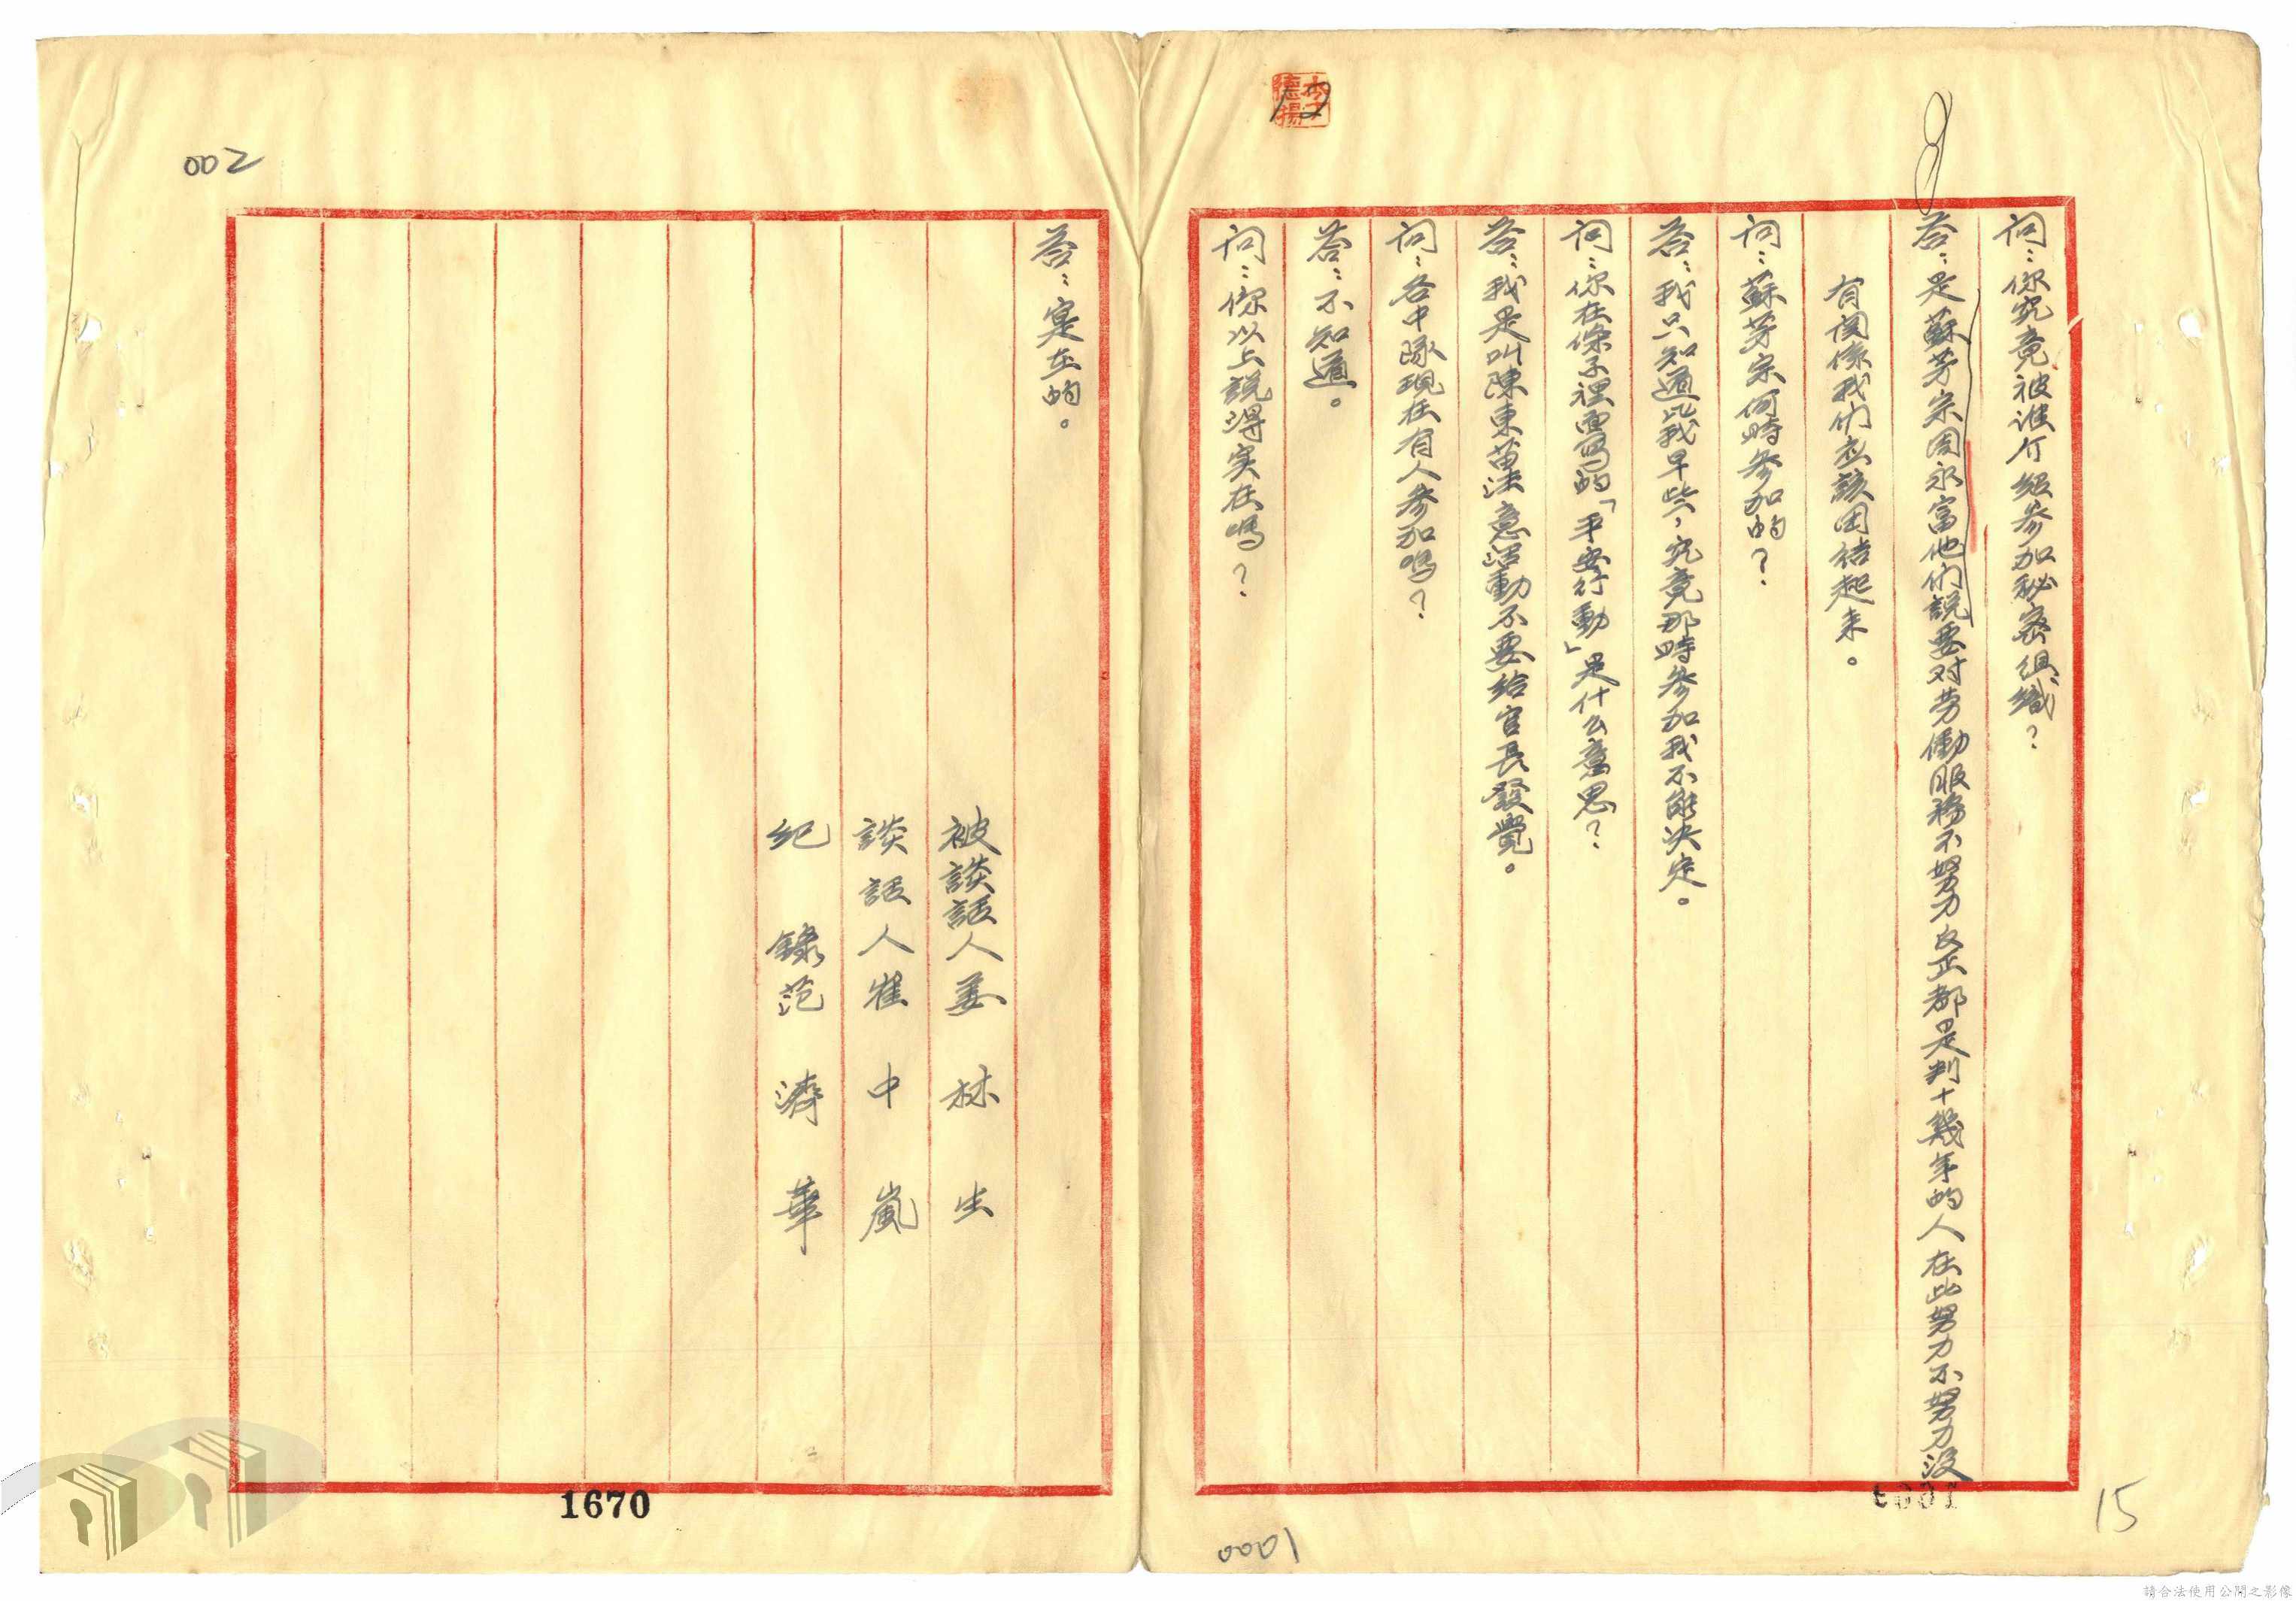 问：你究竟被谁介紹参加秘密組織？
答：是蘇芳宗周永富他们說要对劳働服務不努力反正都是判十幾年的人在此努力不努力没
有関係我们应該团结起来。
问：蘇芳宗何時参加的？
答：我只知道比我早些，究竟那時参加我不能决定。
问：你在條子裡面写的「平安行動」是什么意思？
答：我是叫陳東苗注意活動不要給官長發覺。
问：各中隊現在有人参加嗎？
答：不知道。
问：你以上說得实在嗎？
答：実在的。
被談話人姜林生
談話人崔中嵐
纪錄范濟華
002
12
15
0001
1670
請合法使用公開之影像